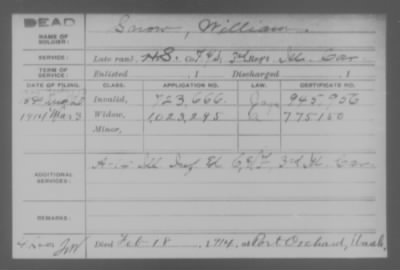 DEAD
NAME OF SOLDIER:
Snow, William.
SERVICE:
Late rank, H.S. Co. F.&S. 3rd Reg't Ill. Cav.
TERM OF SERVICE:
Enlisted , 1 Discharged , 1
DATE OF FILING. CLASS. APPLICATION NO. LAW. CERTIFICATE NO.
Invalid, 723,666. 945,956
1914 Mar 3 Widow, 1023,295 775150
Minor,
ADDITIONAL SERVICES:
Ill. Inf. 3rd Ill. Cav.
REMARKS:
Died Feb 18, 1914, at Port Orchard, Wash.